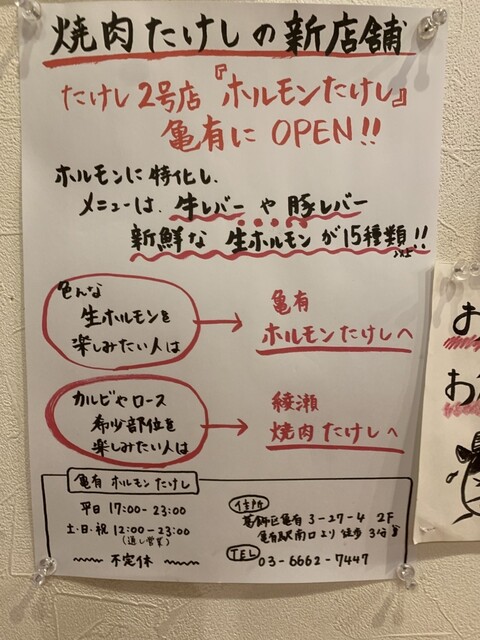 焼肉たけしの新店舗
たけし2号店『ホルモンたけし』
亀有に OPEN!!
ホルモンに特化し、
メニューは、牛レバーや豚レバー
新鮮な 生ホルモンが15種類!!
以上
色んな
生ホルモンを
楽しみたい人は
亀有
ホルモンたけしへ
カルビやロース
希少部位を
楽しみたい人は
綾瀬
焼肉たけしへ
亀有 ホルモンたけし
平日 17:00-23:00
土・日・祝 12:00-23:00
(通し営業)
不定休
住所
葛飾区亀有 3-27-4 2F
亀有駅南口より徒歩3分
TEL
03-6662-7447
お
お